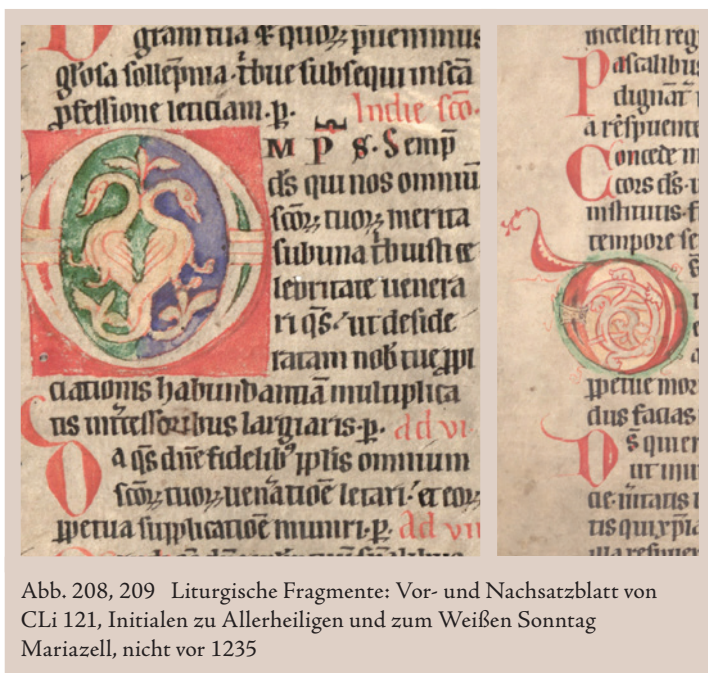 gram tua & quoꝝ p̄uenimus
glosa sollēpnia. t̾bue subsequi instā
ꝓfessione leticiam. p̱. In die sc̄o.
O M P̄ S. S emp̄
ds̄ qui nos omniū
sc̄oꝝ tuoꝝ merita
sub una t̾buisti ce
lebritate uenera
ri qs̄. ut deside
ratam nob̄ tue ꝓpi
ciationis habundantiā multiplica
tis int̾cessoribus largiaris. p̱. ad vi
D a qs̄ dn̄e fidelib' pplis omnium
sc̄oꝝ tuoꝝ uen̾atioē letari. et eoꝝ
ꝑpetua supplicatioē muniri. p̱. ad vii
in celesti reg
P ascalibus
dignar̄
a respuente
C oncede m
cors ds̄. u
institutis. f
tempore fe
D
ꝑpetue mor
dus facias
D s̄ qui er
ut inni
tis qui xp̄ia
Abb. 208, 209 Liturgische Fragmente: Vor- und Nachsatzblatt von
CLi 121, Initialen zu Allerheiligen und zum Weißen Sonntag
Mariazell, nicht vor 1235